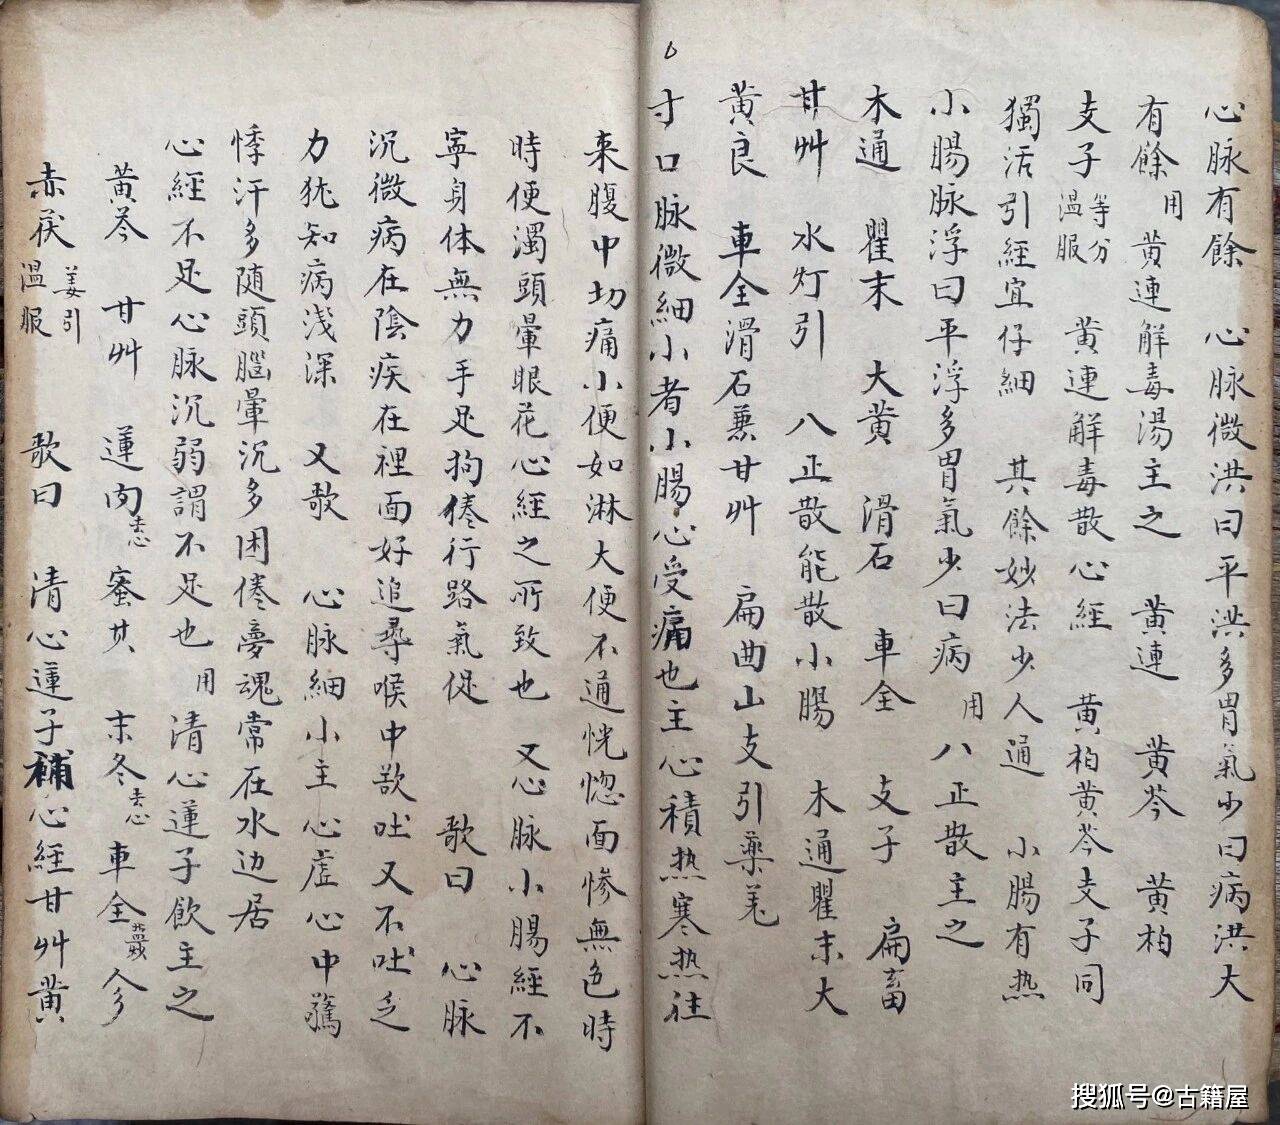 心脉有餘　心脉微洪曰平洪多胃氣少曰病洪大
有餘用黄連解毒湯主之　黄連　黄芩　黄柏
支子等分温服　黄連解毒散心經　黄柏黄芩支子同
獨活引經宜仔細　其餘妙法少人通　小腸有热
小腸脉浮曰平浮多胃氣少曰病用八正散主之
木通　瞿末　大黄　滑石　車全　支子　扁畜
甘艸　水灯引　八正散能散小腸　木通瞿末大
黄良　車全滑石兼甘艸　扁曲山支引藥羌
寸口脉微細小者小腸心受痛也主心積热寒热往
来腹中切痛小便如淋大便不通恍惚面惨無色時
時便濁頭暈眼花心經之所致也　又心脉小腸經不
寧身体無力手足拘倦行路氣促　歌曰　心脉
沉微病在陰疾在裡面好追尋喉中欲吐又不吐乏
力犹知病浅深　又歌　心脉細小主心虚心中驚
悸汗多随頭腦暈沉多困倦夢魂常在水边居
心經不足心脉沉弱謂不足也用清心蓮子飲主之
黄芩　甘艸　蓮肉去心　蜜其　末冬去心　車全　參
赤茯姜引温服　歌曰　清心蓮子補心経甘艸黄
搜狐号@古籍屋